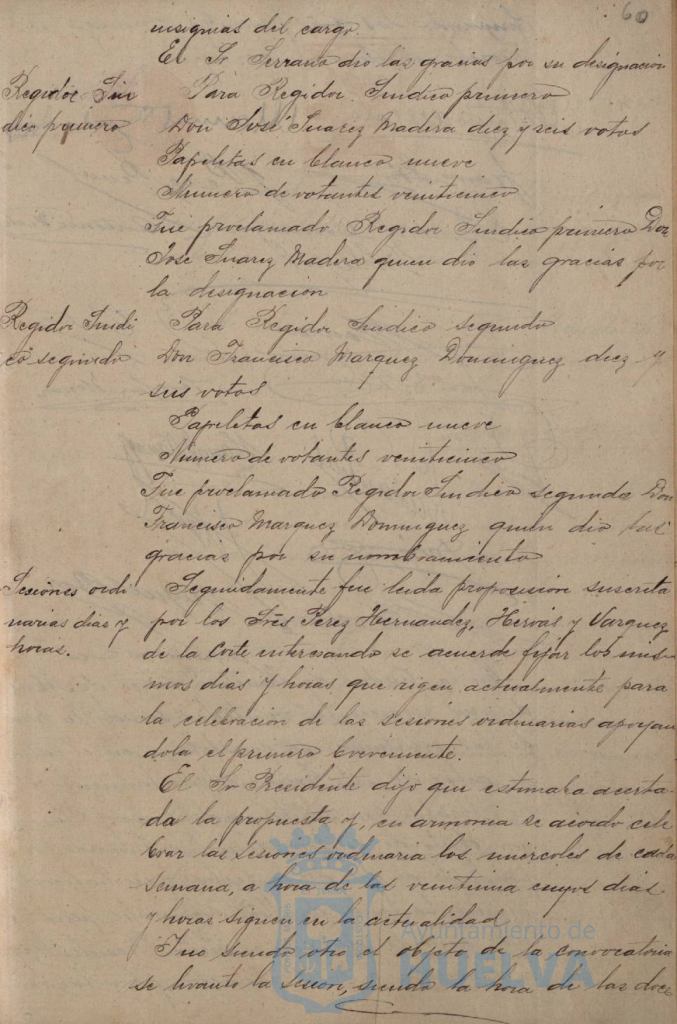 60
insignias del cargo.
El Sr Serrano dio las gracias por su designacion
Regidor Sin
dico primero
Para Regidor Sindico primero
Don José Suarez Madera diez y seis votos
Papeletas en blanco nueve
Numero de votantes veinticinco
Fue proclamado Regidor Sindico primero Don
Jose Suarez Madera quien dio las gracias por
la designacion
Regidor Sindi
co segundo
Para Regidor Sindico segundo
Don Francisco Marquez Dominguez diez y
seis votos
Papeletas en blanco nueve
Número de votantes veinticinco
Fue proclamado Regidor Sindico segundo Don
Francisco Marquez Dominguez quien dio las
gracias por su nombramiento
Sesiones ordi
narias dias y
horas.
Seguidamente fue leida proposición suscrita
por los Srēs Perez Hernandez, Hervás y Vazquez
de la Corte interesando se acuerde fijar los mis-
mos dias y horas que rigen actualmente para
la celebración de las sesiones ordinarias apoyan
dola el primero brevemente.
El Sr Presidente dijo que estimaba acerta-
da la propuesta y, en armonia se acordo cele
brar las sesiones ordinaria los miercoles de cada
semana, a hora de las veintiuna cuyos dias
y horas siguen en la actualidad
Y no siendo otro el objeto de la convocatoria
se levanto la sesion, siendo la hora de las doce
Ayuntamiento de
HUELVA